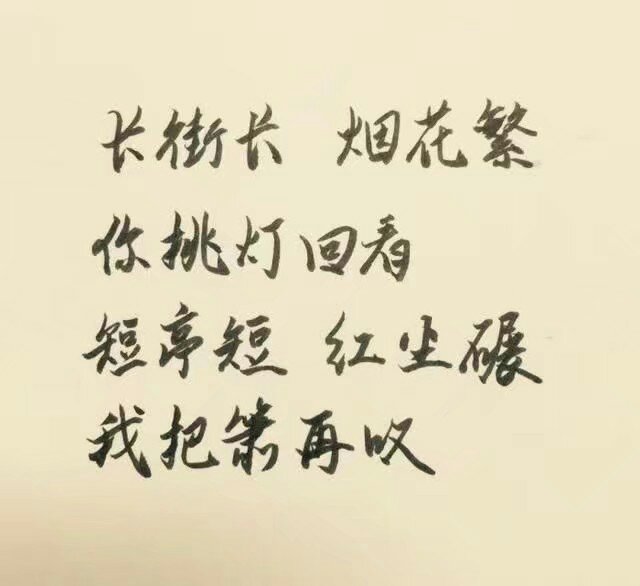 长街长 烟花繁
你挑灯回看
短亭短 红尘碾
我把箫再叹